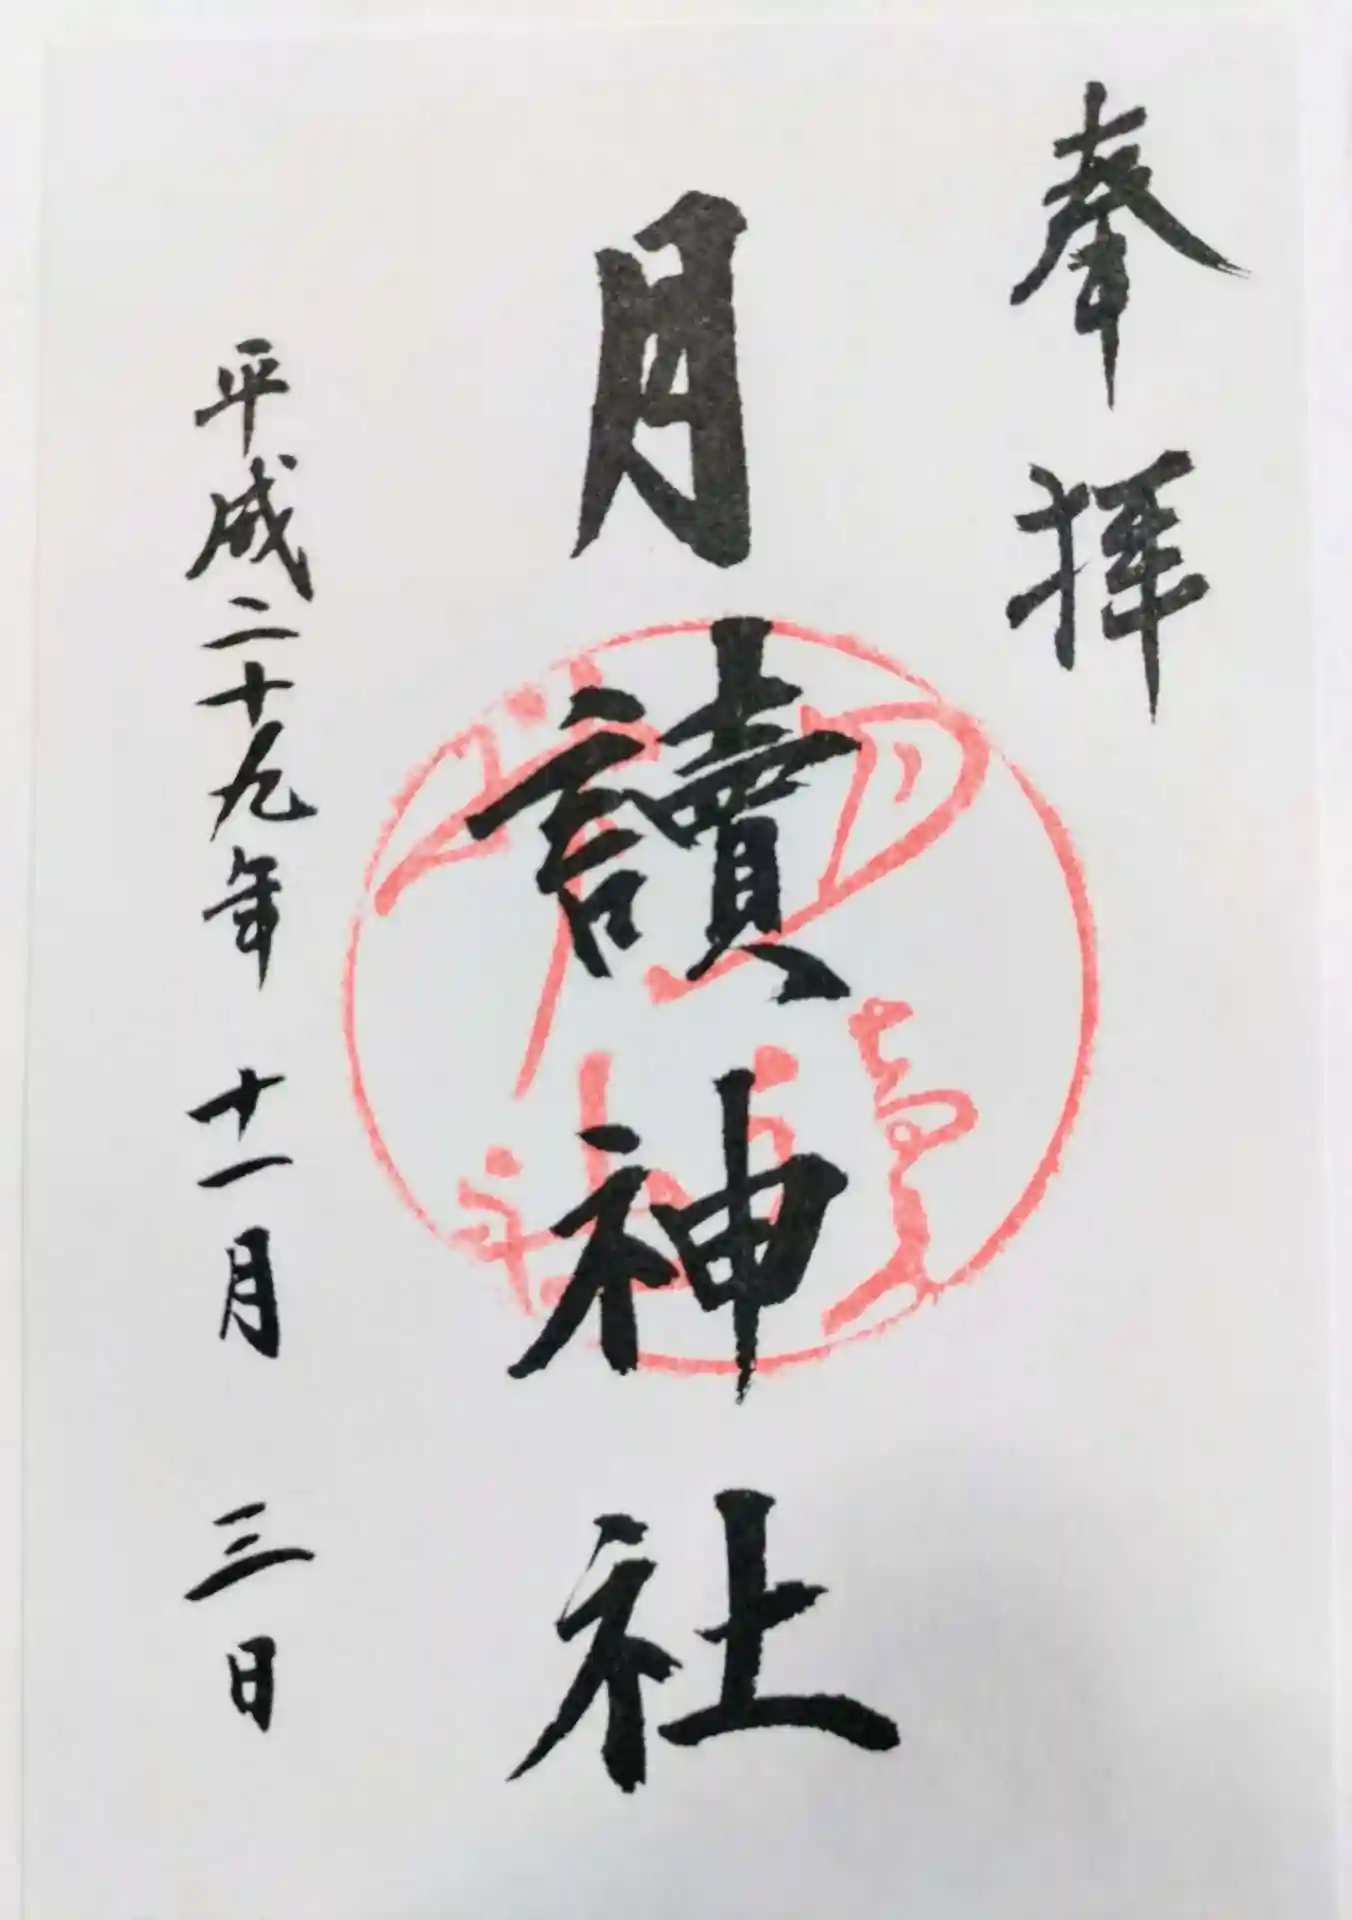 奉拝
月讀神社
平成二十九年十一月三日
月讀神社